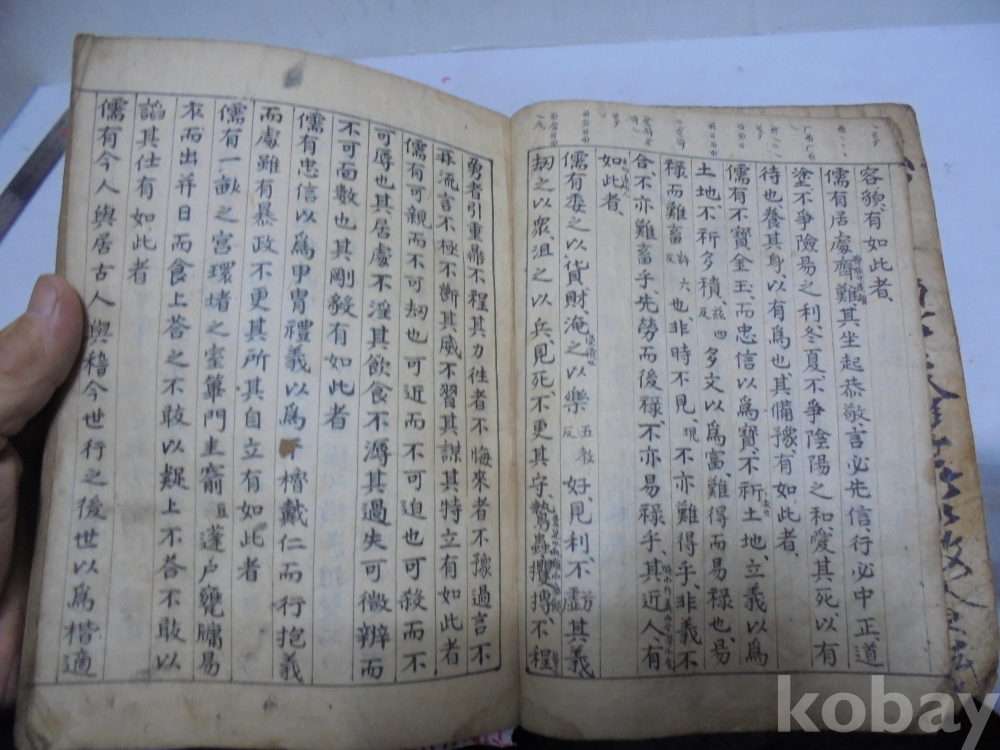 容貌有如此者
儒有居處齊難其坐起恭敬言必先信行必中正道
塗不爭險易之利冬夏不爭陰陽之和愛其死以有
待也養其身以有爲也其備豫有如此者
儒有不寶金玉而忠信以爲寶不祈土地立義以爲
土地不祈多積多文以爲富難得而易祿也易
祿而難畜也非時不見現不亦難得乎非義不
合不亦難畜乎先勞而後祿不亦易祿乎其近人有
如此者
儒有委之以貨財淹之以樂五敎反好見利不虧其義
劫之以衆沮之以兵見死不更其守鷙蟲攫搏不程
勇者引重鼎不程其力徃者不悔來者不豫過言不
再流言不極不斷其威不習其謀其特立有如此者
儒有可親而不可劫也可近而不可迫也可殺而不
可辱也其居處不淫其飮食不溽其過失可微辨而
不可面數也其剛毅有如此者
儒有忠信以爲甲冑禮義以爲干櫓戴仁而行抱義
而處雖有暴政不更其所其自立有如此者
儒有一畝之宮環堵之室篳門圭窬蓬戶甕牖易
衣而出幷日而食上荅之不敢以疑上不荅不敢以
諂其仕有如此者
儒有今人與居古人與稽今世行之後世以爲楷適
kobay